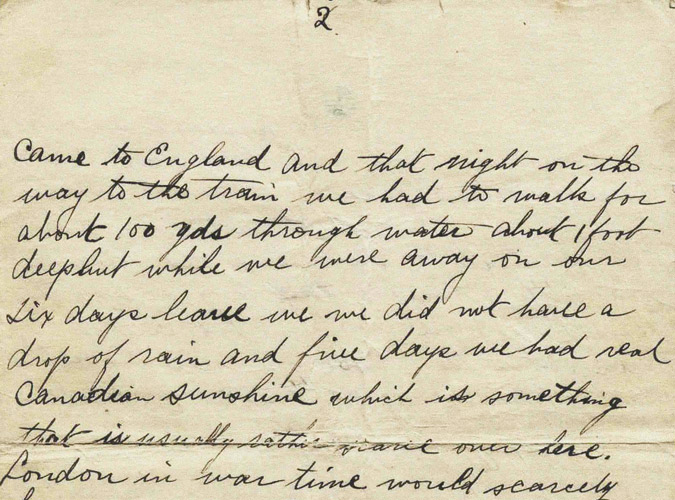 2
Came to England and that night on the
way to the train we had to walk for
about 100 yds through water about 1 foot
deep but while we were away on our
six days leave we we did not have a
drop of rain and five days we had real
Canadian sunshine which is something
that is usually rather rare over here.
London in war time would scarcely